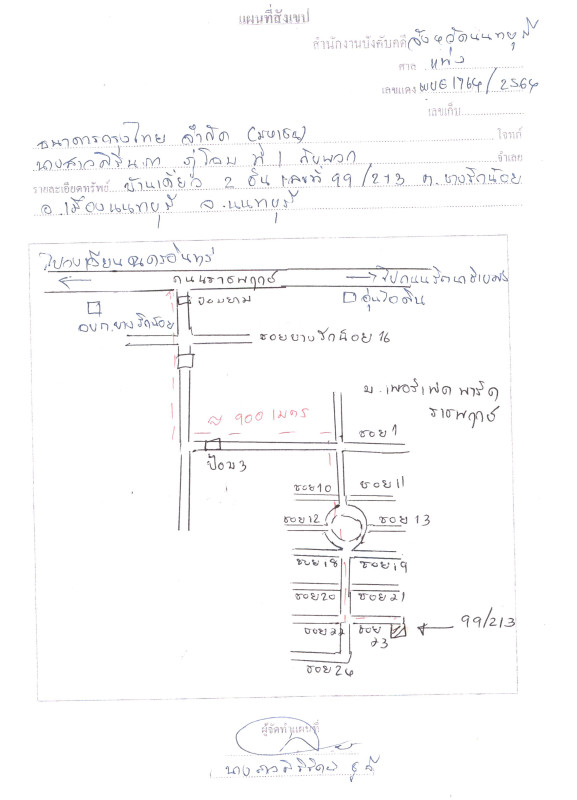 แผนที่สังเขป
สำนักงานบังคับคดี จังหวัดนนทบุรี
ศาล แพ่ง
เลขแดง ผบE1764/2564
เลขเก็บ
ธนาคารกรุงไทย จำกัด (มหาชน) โจทก์
นางสาว ที่ 1 กับพวก จำเลย
รายละเอียดทรัพย์ บ้านเดี่ยว 2 ชั้น เลขที่ 99/213 ต.บางรักน้อย
อ.เมืองนนทบุรี จ.นนทบุรี
ไปวงเวียนนครอินทร์
ถนนราชพฤกษ์
ไปถนนรัตนาธิเบศร์
ป้อมยาม
อบต.บางรักน้อย
ซอยบางรักน้อย 16
ม.เพอร์เฟค พาร์ค
ราชพฤกษ์
900 เมตร
ซอย 1
ป้อม 3
ซอย 10
ซอย 11
ซอย 12
ซอย 13
ซอย 18
ซอย 19
ซอย 20
ซอย 21
ซอย 22
ซอย 23
99/213
ซอย 24
ผู้จัดทำแผนที่